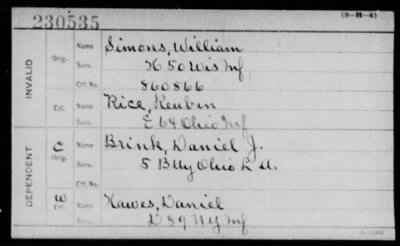 230535
(3-H-4)
INVALID
Orig. Name Simons, William
Serv. H 50 Wis Inf
Ctf. No. 860866
Ctf. Name Rice, Reuben
Serv. E 64 Ohio Inf
DEPENDENT
C Orig. Name Brink, Daniel J.
Serv. 5 Btty Ohio L A.
Ctf. No.
W Ctf. Name Hawes, Daniel
Serv. D 89 NY Inf